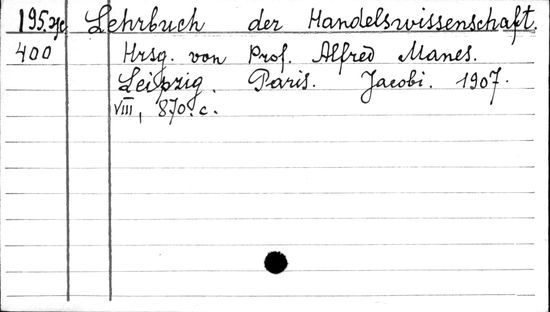 195. Lehrbuch der Handelswissenschaft.
400 Hrsg. von Prof. Alfred Manes.
Leipzig. Paris. Jacobi. 1907.
VIII, 870. c.